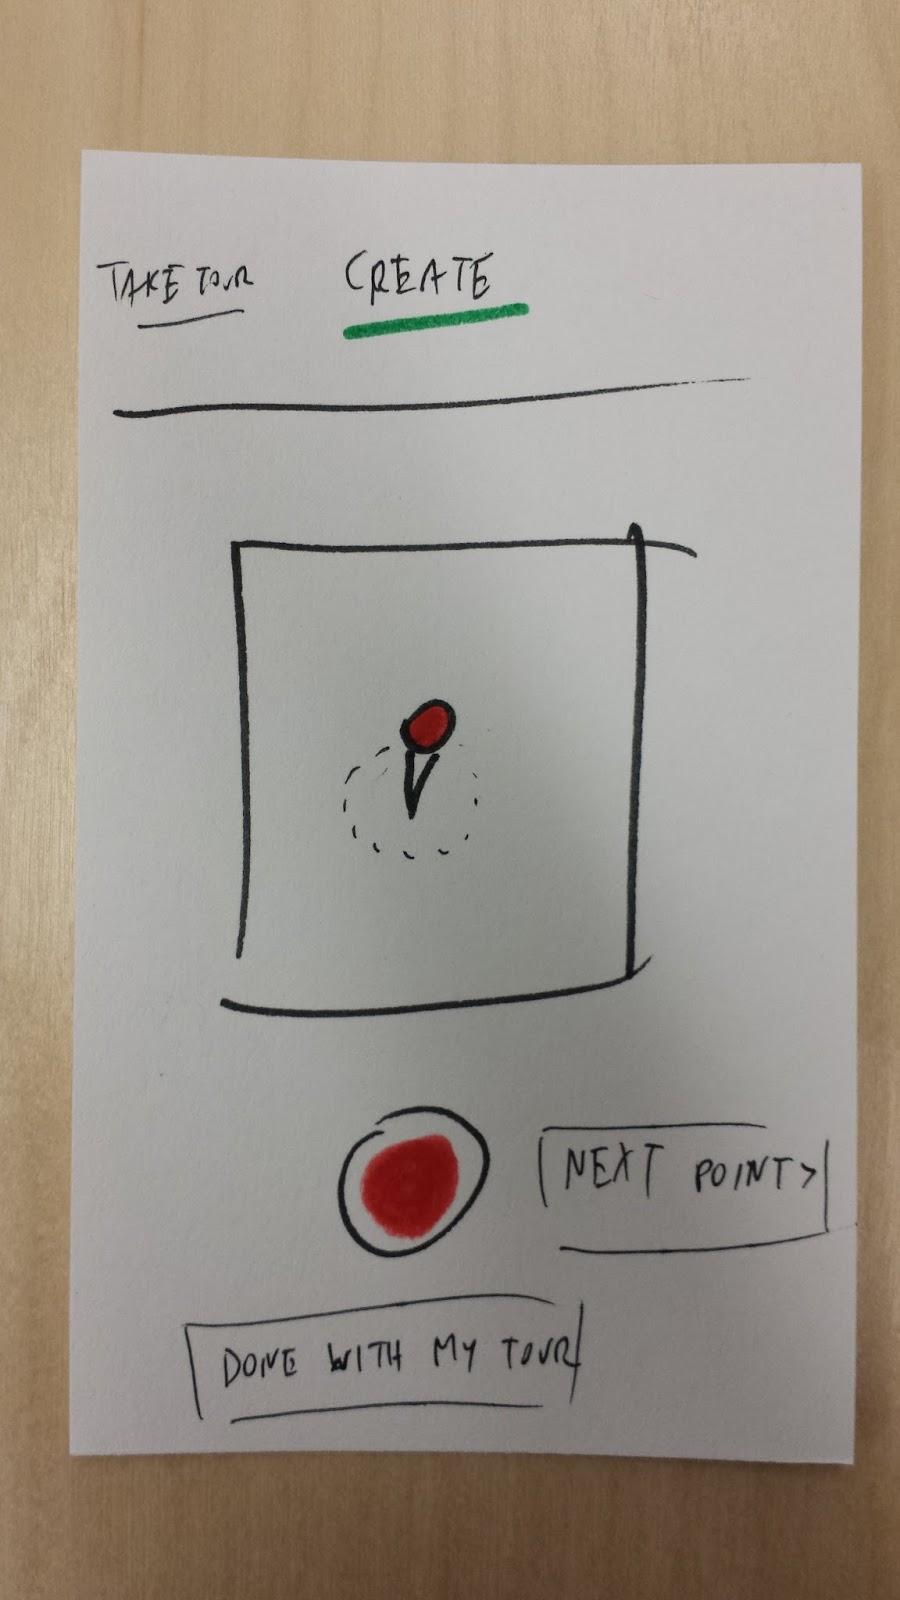 TAKE TOUR CREATE
NEXT POINT>
DONE WITH MY TOUR